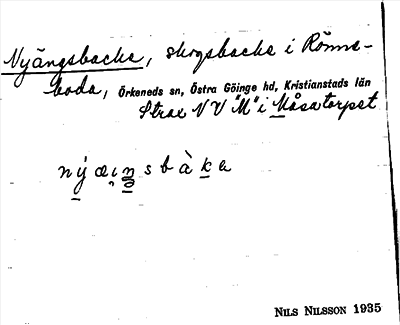 Nyängsbacka, skogsbacke i Rönne-
boda, Örkeneds sn, Östra Göinge hd, Kristianstads län
Strax NV "M" i Måsatorpet
NILS NILSSON 1935